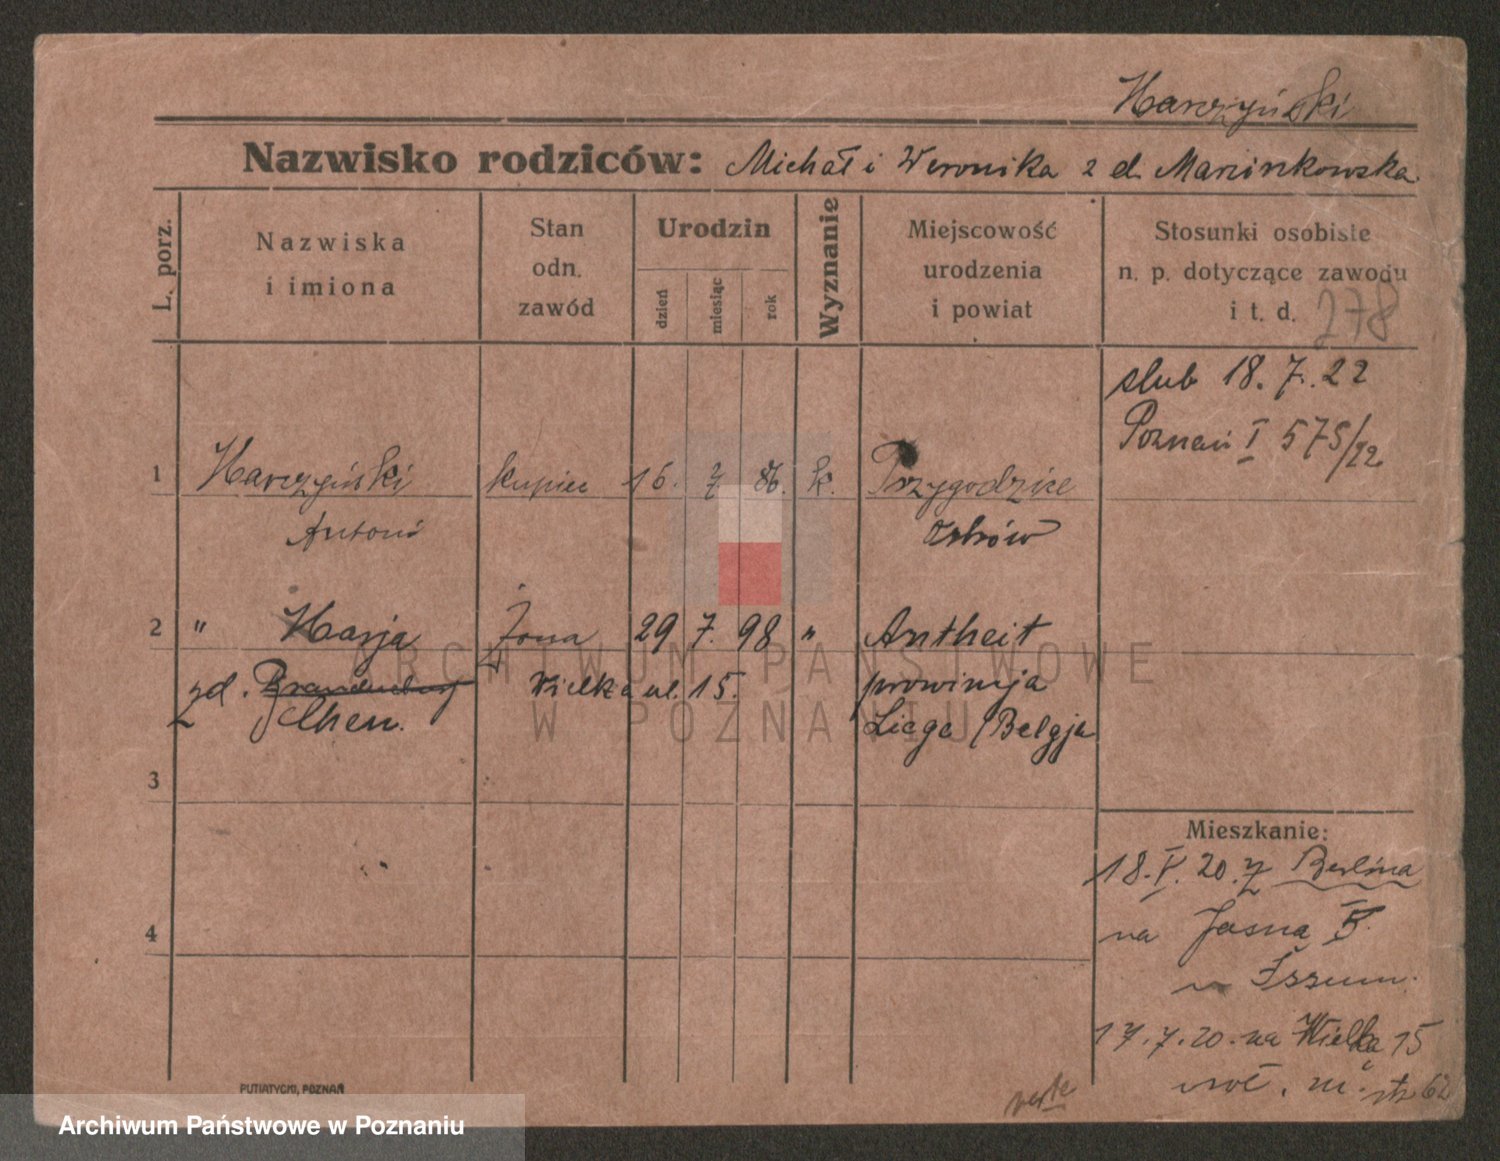 Harczyński
Nazwisko rodziców: Michał i Weronika z d. Marcinkowska
L. porz.
Nazwiska
i imiona
Stan
odn.
zawód
Urodzin
dzień
miesiąc
rok
Wyznanie
Miejscowość
urodzenia
i powiat
Stosunki osobiste
n. p. dotyczące zawodu
i t. d.
278
slub 18.7.22
Poznań I 575/22
1 Harczyński kupiec 16. 7 86. k. Przygodzice
Antoni Ostrów
2 " Marja Żona 29 7. 98 " Antheit
zd. Brandenburg Wielka ul. 15. prowincja
Jelhen. Liege (Belgja
3
4
Mieszkanie:
18.V.20. z Berlina
na Jasna 5.
u Iszum.
17.7.20. na Wielka 15
62
verte
PUTIATYCKI, POZNAŃ
ARCHIWUM PAŃSTWOWE
W POZNANIU
Archiwum Państwowe w Poznaniu